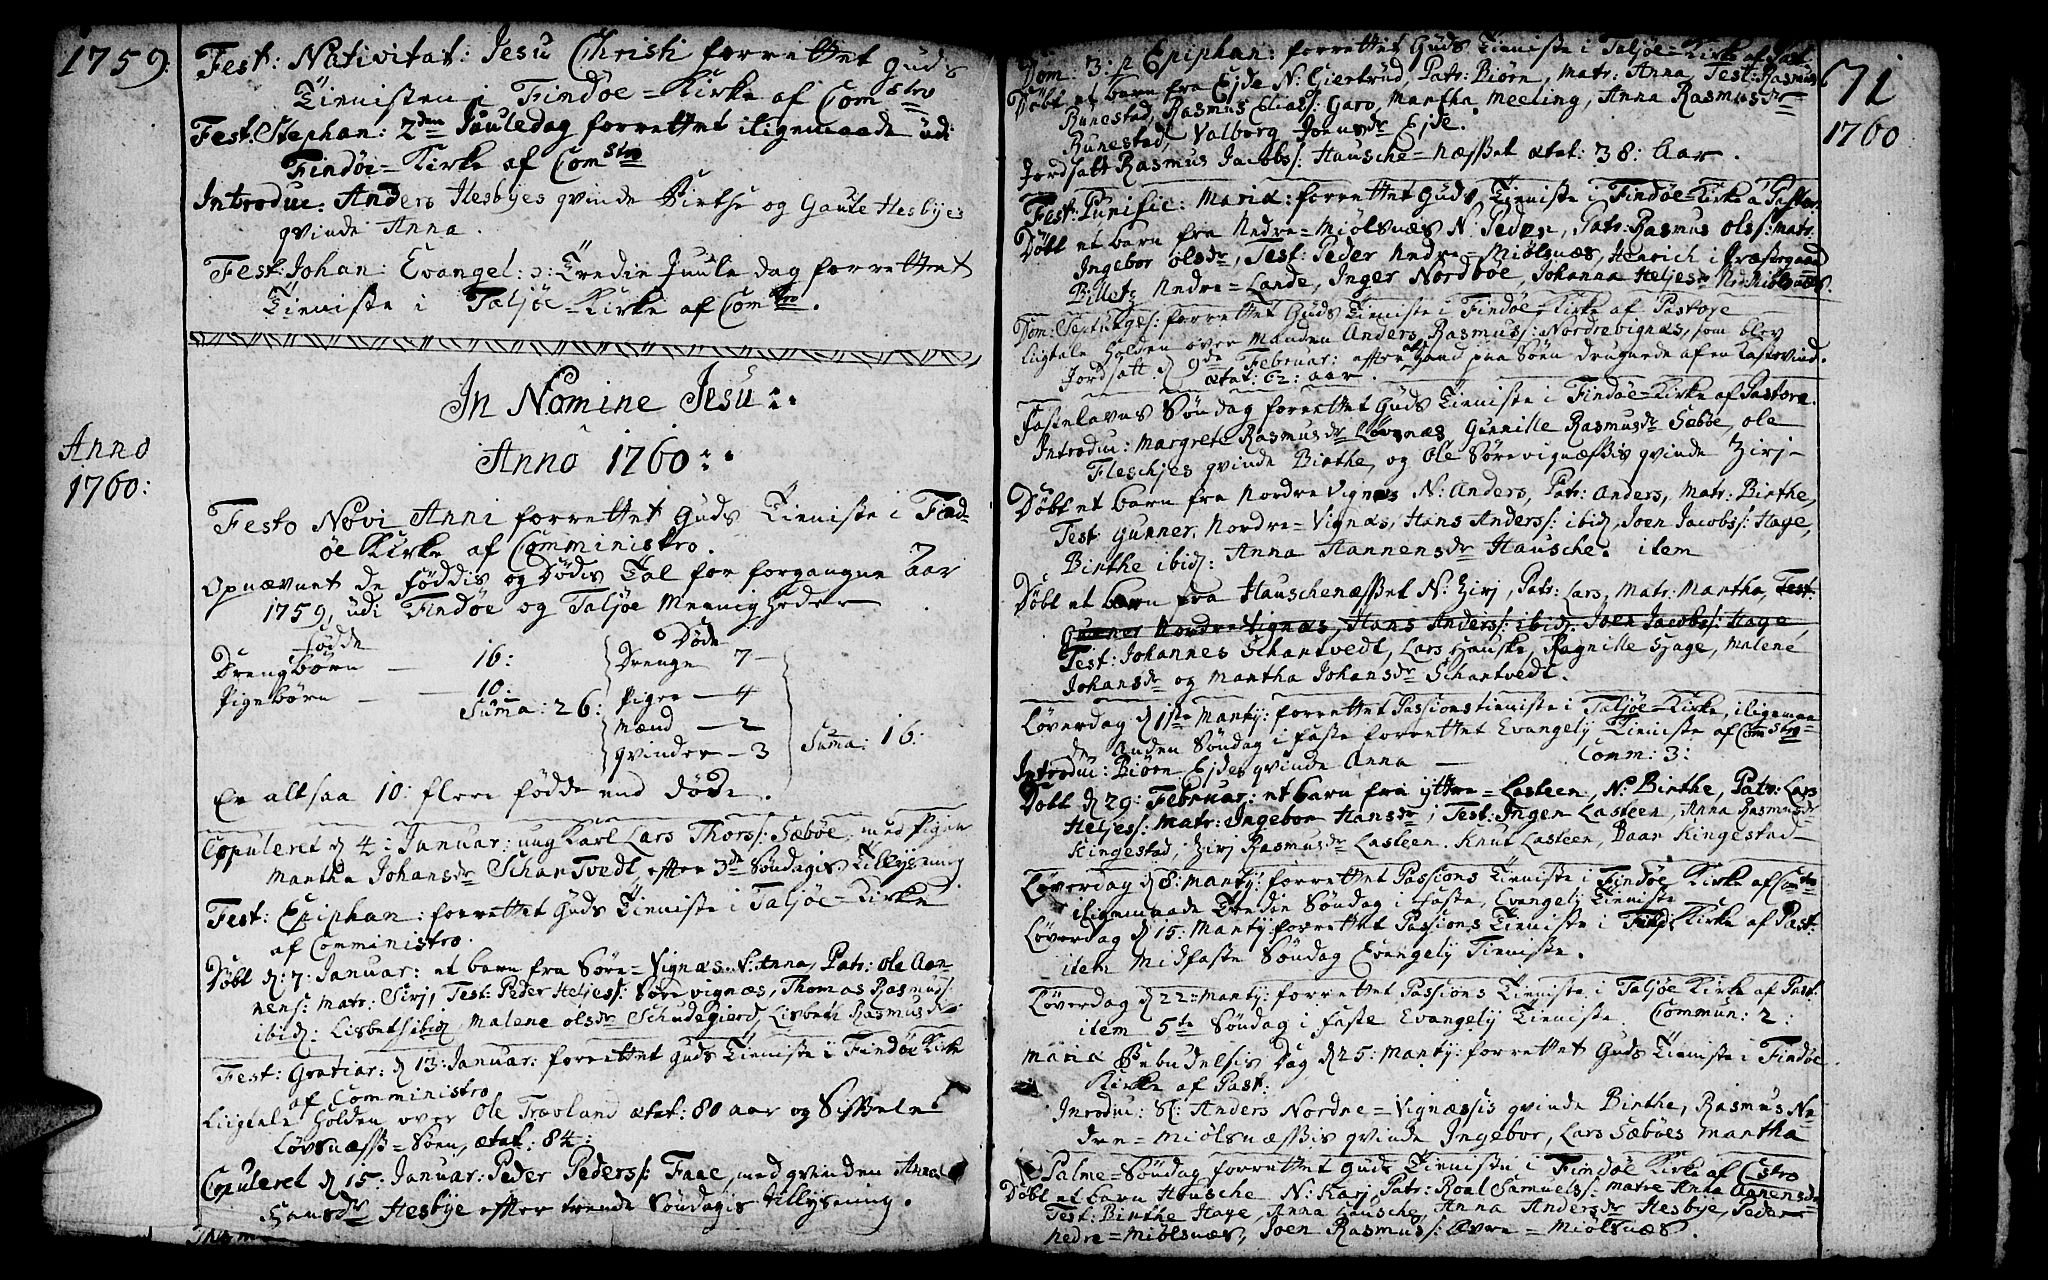 1759.
Fest: Nativitat: Jesu Christi forrettet Guds
Tienisten i Findøe-Kirke af Com stro
Fest: Stephan: 2den Juuledag forrettet iligemaade udi
Findøe-Kirke af Com stro
Introduc: Anders Hesbyes qvinde Birthe og Gaute Hesbyes
qvinde Anna.
Fest: Johan: Evangel: ɔ: Tredie Juule dag forrettet
Tieniste i Taljøe-Kirke af Com stro.
In Nomine Jesu
Anno 1760
Anno
1760:
Festo Novi Anni forrettet Guds Tieniste i Find-
øe Kirke af Comministro.
Opnævnet de føddis og Dødis Tal for forgangne Aar
1759, udi Findøe og Taljøe Meenigheder
Fødde
Døde
Drengbørn — 16:
Drenge 7
Pigebørn — 10.
Suma: 26:
Piger — 4
Mænd — 2
qvinder — 3
Suma: 16:
Er altsaa 10: flere fødde end døde.
Copuleret d 4: Januar: ung Karl Lars Thors: Sæbøe, med Pigen
Martha Johansdr Schartvedt, efter 3de Søndagis Tillysning
Fest: Epiphan: forrettet Guds Tieniste i Taljøe-Kirke
af Comministro.
Døbt d: 7: Januar: et barn fra Søre-Vignæs N: Anna, Patr: Ole Aan-
nens: Matr: Sirj, Test: Peder Heljes: Sørevignæs, Thomas Rasmus:
ibid: Lisbet ibid, Malene Olsdr Schudegierd, Lisbeth Rasmusdr
Fest: Gratiar: d 13: Januar: forrettet Guds Tieniste i Findøe Kirke
af Comministro
Liigtale Holden over Ole Traoland ætat: 80 aar og
Løvsnæss-Søen, ætat: 84:
Copuleret d 15: Januar: Peder Peders: Faae, med qvinden Anna
Hansdr Hesbye efter trende Søndagis tillysning.
71
1760
Dom: 3: p Epiphan: forrettet Guds Tieniste i Taljøe-Kirke af Past:
Døbt et barn fra Ejde N: Giertrud, Patr: Biørn, Matr: Anna, Test: Rasmus
Bunestad, Rasmus Elias: Garo, Martha Meeling, Anna Rasmusdr
Runestad, Valborg Joensdr Ejde.
Jordsatt Rasmus Jacobs: Hausche-Næsset ætat: 38: Aar.
Fest: Purific: Mariæ: forrettet Guds Tieniste i Findøe-Kirke a Pastor
Døbt et barn fra Nedre-Miølsnæs N: Peder, Patr: Rasmus Ols: Matr:
Ingebor Olsdr, Test: Peder Nedre-Miølsnæs, Henrich i Præstegaard
Billetz Nedre-Lande, Inger Nordbøe, Johanna Heljesdr Ned: Miølsnæs.
Dom: Septuages: forrettet Guds Tieniste i Findøe Kirke af Pastore
Liigtale Holden over Manden Anders Rasmus: Nordrevignæs, som blev
Jordsatt d 9de Februar: efter Hand paa Søen drugnede af en Kastevind.
ætat: 62: aar.
Fastelavns Søndag forrettet Guds Tieniste i Findøe-Kirke af Pastore.
Introduc: Margrete Rasmusdr Løvsnæs Gunnille Rasmusdr Sæbøe, Ole
Fleschjes qvinde Birthe, og Ole Sørevignæssis qvinde Zirj-
Døbt et barn fra Nordre Vignæs N: Anders, Patr: Anders, Matr: Birthe,
Test Gunner, Nordre-Vignæs, Hans Anders: ibid, Joen Jacobs: Hage,
Birthe ibid: Anna Aannensdr Hausche. item
Døbt et barn fra Hauschenæsset N: Zirj, Patr: Lars, Matr: Martha, Test:
Gunner Nordre Vignæs, Hans Anders: ibid. Joen Jacobs: Hage
Test: Johannes Schartvedt, Lars Hauske, Ragnille Hage, Malene
Johansdr og Martha Johansdr Schartvedt.
Løverdag d 1ste Martij: forrettet Passions tieniste i Taljøe-Kirke, iligemaa
de Anden Søndag i faste forrettet Evangelij Tieniste af Com stro
Introduc: Biørn Ejdes qvinde Anna — Comm: 3:
Døbt d 29: Februar: et barn fra ijttre-Lasteen, N: Birthe, Patr: Lars
Heljes: Matr: Ingebor Hansdr; Test: Inger Lasteen, Anna Rasmusdr
Kingestad, Zirj Rasmusdr Lasteen. Knut Lasteen, Daar Kingestad
Løverdag d 8: Martij: forrettet Passions Tieniste i Findøe Kirke af Com stro
iligemaade Tredie Søndag i faste, Evangelij Tieniste
Løverdag d 15: Martij forrettet Passions Tieniste i Find: Kirke af Past:
item Midfaste Søndag Evangelij Tieniste.
Løverdag d 22: Martij: forrettet Passions Tieniste i Taljøe Kirke af Past:
item 5te Søndag i faste Evangelij Tieniste. Commun: 2:
Mariæ Bebudelsis Dag d 25: Martij: forrettet Guds Tieniste i Findøe
Kirke af Past:
Inroduc: Sl: Anders Nordre-Vignæssis qvinde Birthe, Rasmus Ne-
dre-Miølsnæssis qvinde Ingebor, Lars Sæbøes Martha
Palme-Søndag forrettet Guds Tieniste i Findøe Kirke af Cstro
Døbt et barn Hausche N: Karj Patr: Roal Samuels: Matre Anna Aanensdr
Test: Birthe Hage, Anna Hausche, Anna Andersdr Hesbye, Peder
Nedre-Miølsnæs, Joen Rasmus: Øvre-Miølsnæs.